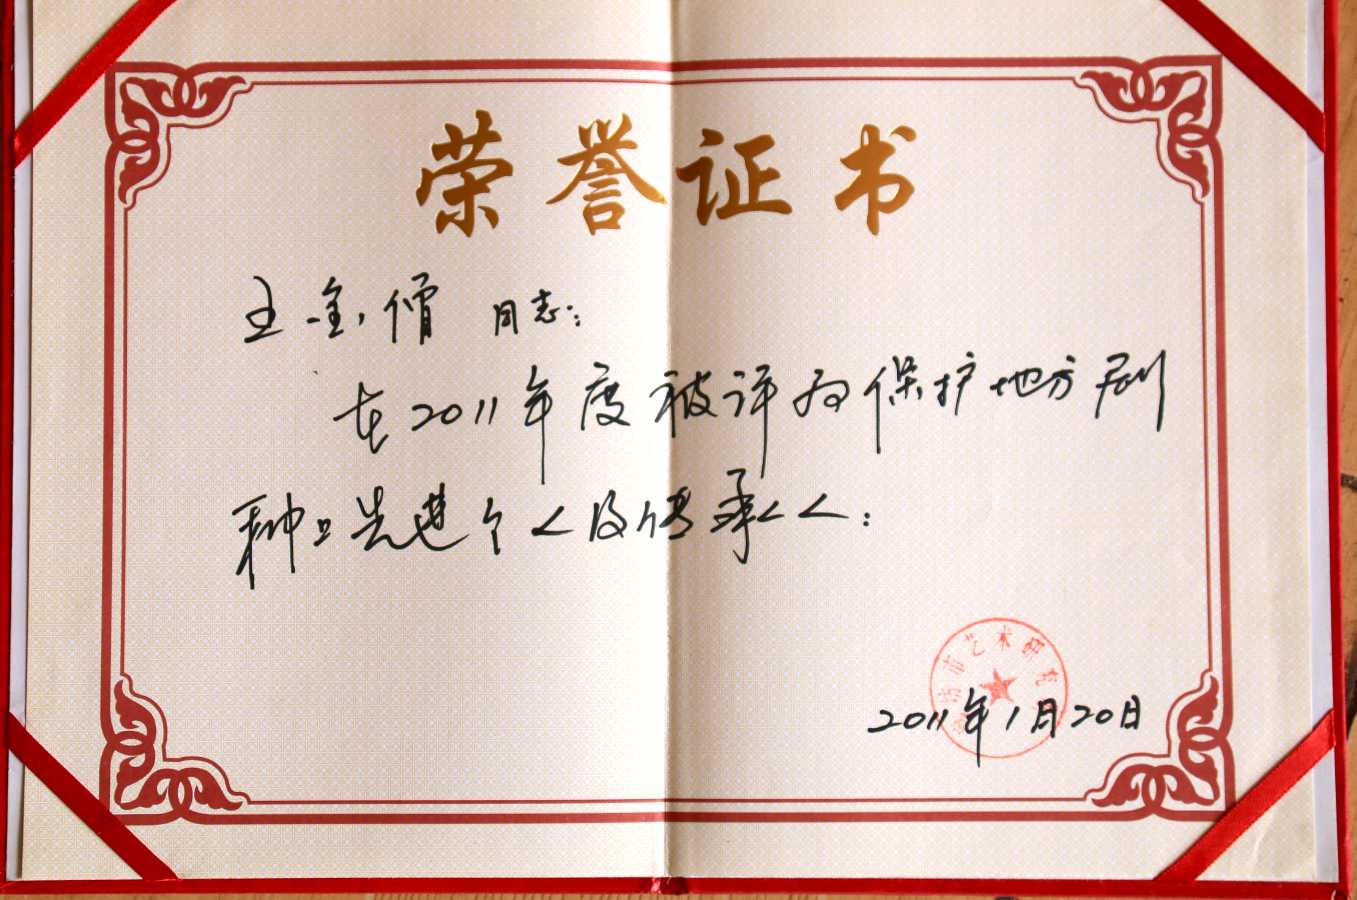 荣誉证书
王金僧 同志:
在2011年度被评为保护地方剧
种口先进个人及传承人:
坊市艺术研究
2011年1月20日